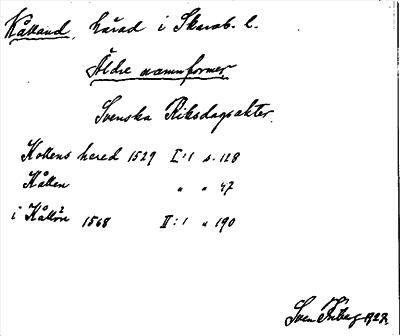 Kålland, härad i Skarab. l.
Äldre namnformer
Svenska Riksdagsakter.
Kollens hered 1529 I:1 s. 128
Kållen " " 47
i Kållöö 1568 II:1 " 190
Sven Friberg 1927.